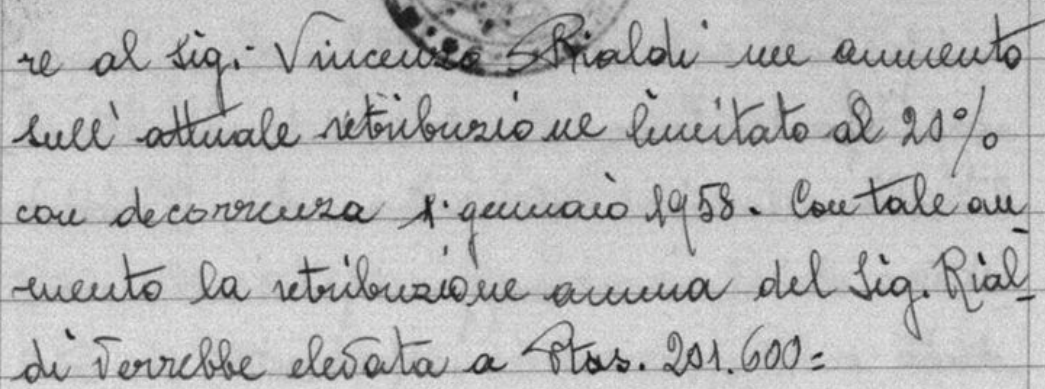 re al Sig. Vincenzo Rialdi un aumento
sull' attuale retribuzione limitato al 20%
con decorrenza 1· gennaio 1958. Con tale au
mento la retribuzione annua del Sig. Rial_
di verrebbe elevata a Ptas. 201.600=